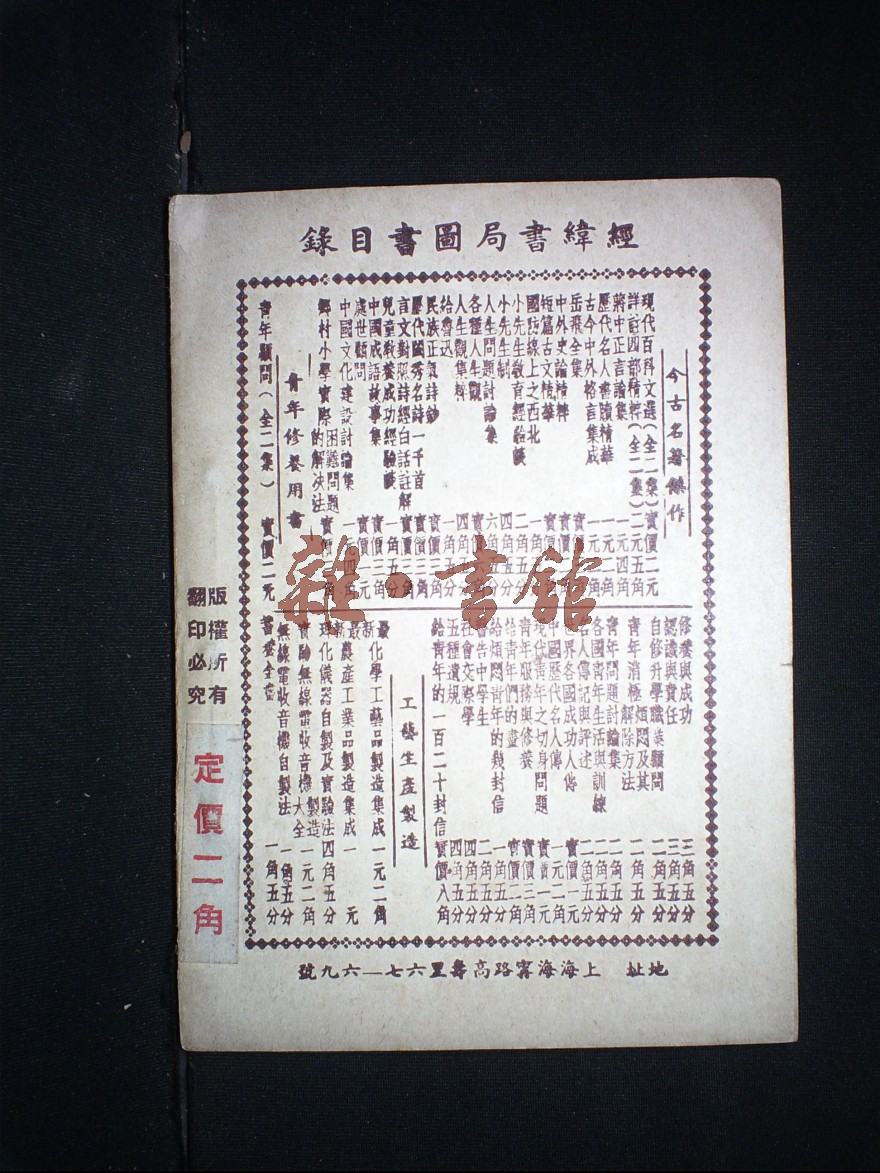 經緯書局圖書目錄
今古名著傑作
現代百科文選(全二集)實價二元
詳註四部精粹(全二集)二元五角
蔣中正言論集 一元四角
歷代名人書牘精華 一元二角
古今中外格言集成 一元
岳飛全集 實價
中外史論精粹 實價
短篇古文精華 實價
國防線上之西北 一角
小先生教育經驗談 二角五分
小先生制 四角五分
人生問題討論集 六角五分
各種人生觀 實價六角
人生觀集粹 四角
給魯迅 一角五分
民族正氣詩鈔 實價三角
歷代閨秀名詩一千首 實價
言文對照詩經白話註解 實價三角
兒童教養成功經驗談 一角五分
中國成語故事集 實價三角
處世顧問 實價一元
中國文化建設討論集 一元四角
鄉村小學實際困難問題的解決法 實價二角
青年修養用書
青年顧問(全二集) 實價二元
修養與成功 三角五分
認識與責任 三角五分
自修升學職業顧問 二角五分
青年消極煩悶及其解除方法 二角五分
青年問題討論集 二角五分
各國青年生活與訓練 二角五分
名人傳記與評述 二角五分
世界各國成功人傳 實價一元
中國歷代名人傳 一元二角
現代青年之切身問題 實價一元
青年服務與修養 實價三角
給青年們的書 實價二角
給煩悶青年的幾封信 一角五分
警告中學生 二角五分
社會交際學 四角五分
五種遺規 四角五分
給青年的一百二十封信 實價八角
工藝生產製造
最新化學工藝品製造集成 一元二角
最新農產工業品製造集成 一元
理化儀器自製及實驗法 四角五分
實驗無線電收音機製造大全 一元二角
無線電收音機自製法 一角五分
蓄養全書 一角五分
地址 上海海寗路高壽里六七—六九號
版權所有
翻印必究
定價二角
雜·書館